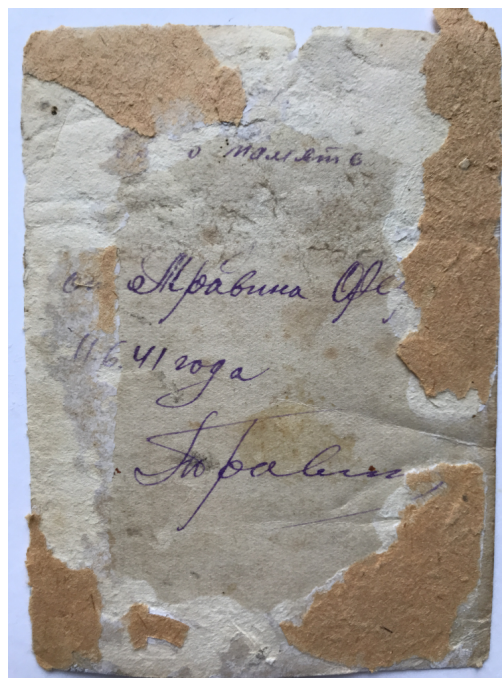 память
от Травина Фе
11.6.41 года
Травин